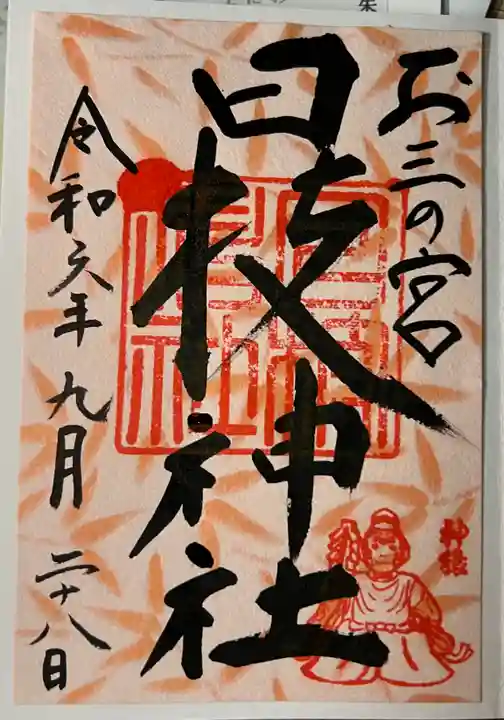 お三の宮
日枝神社
令和六年九月二十八日
神猿